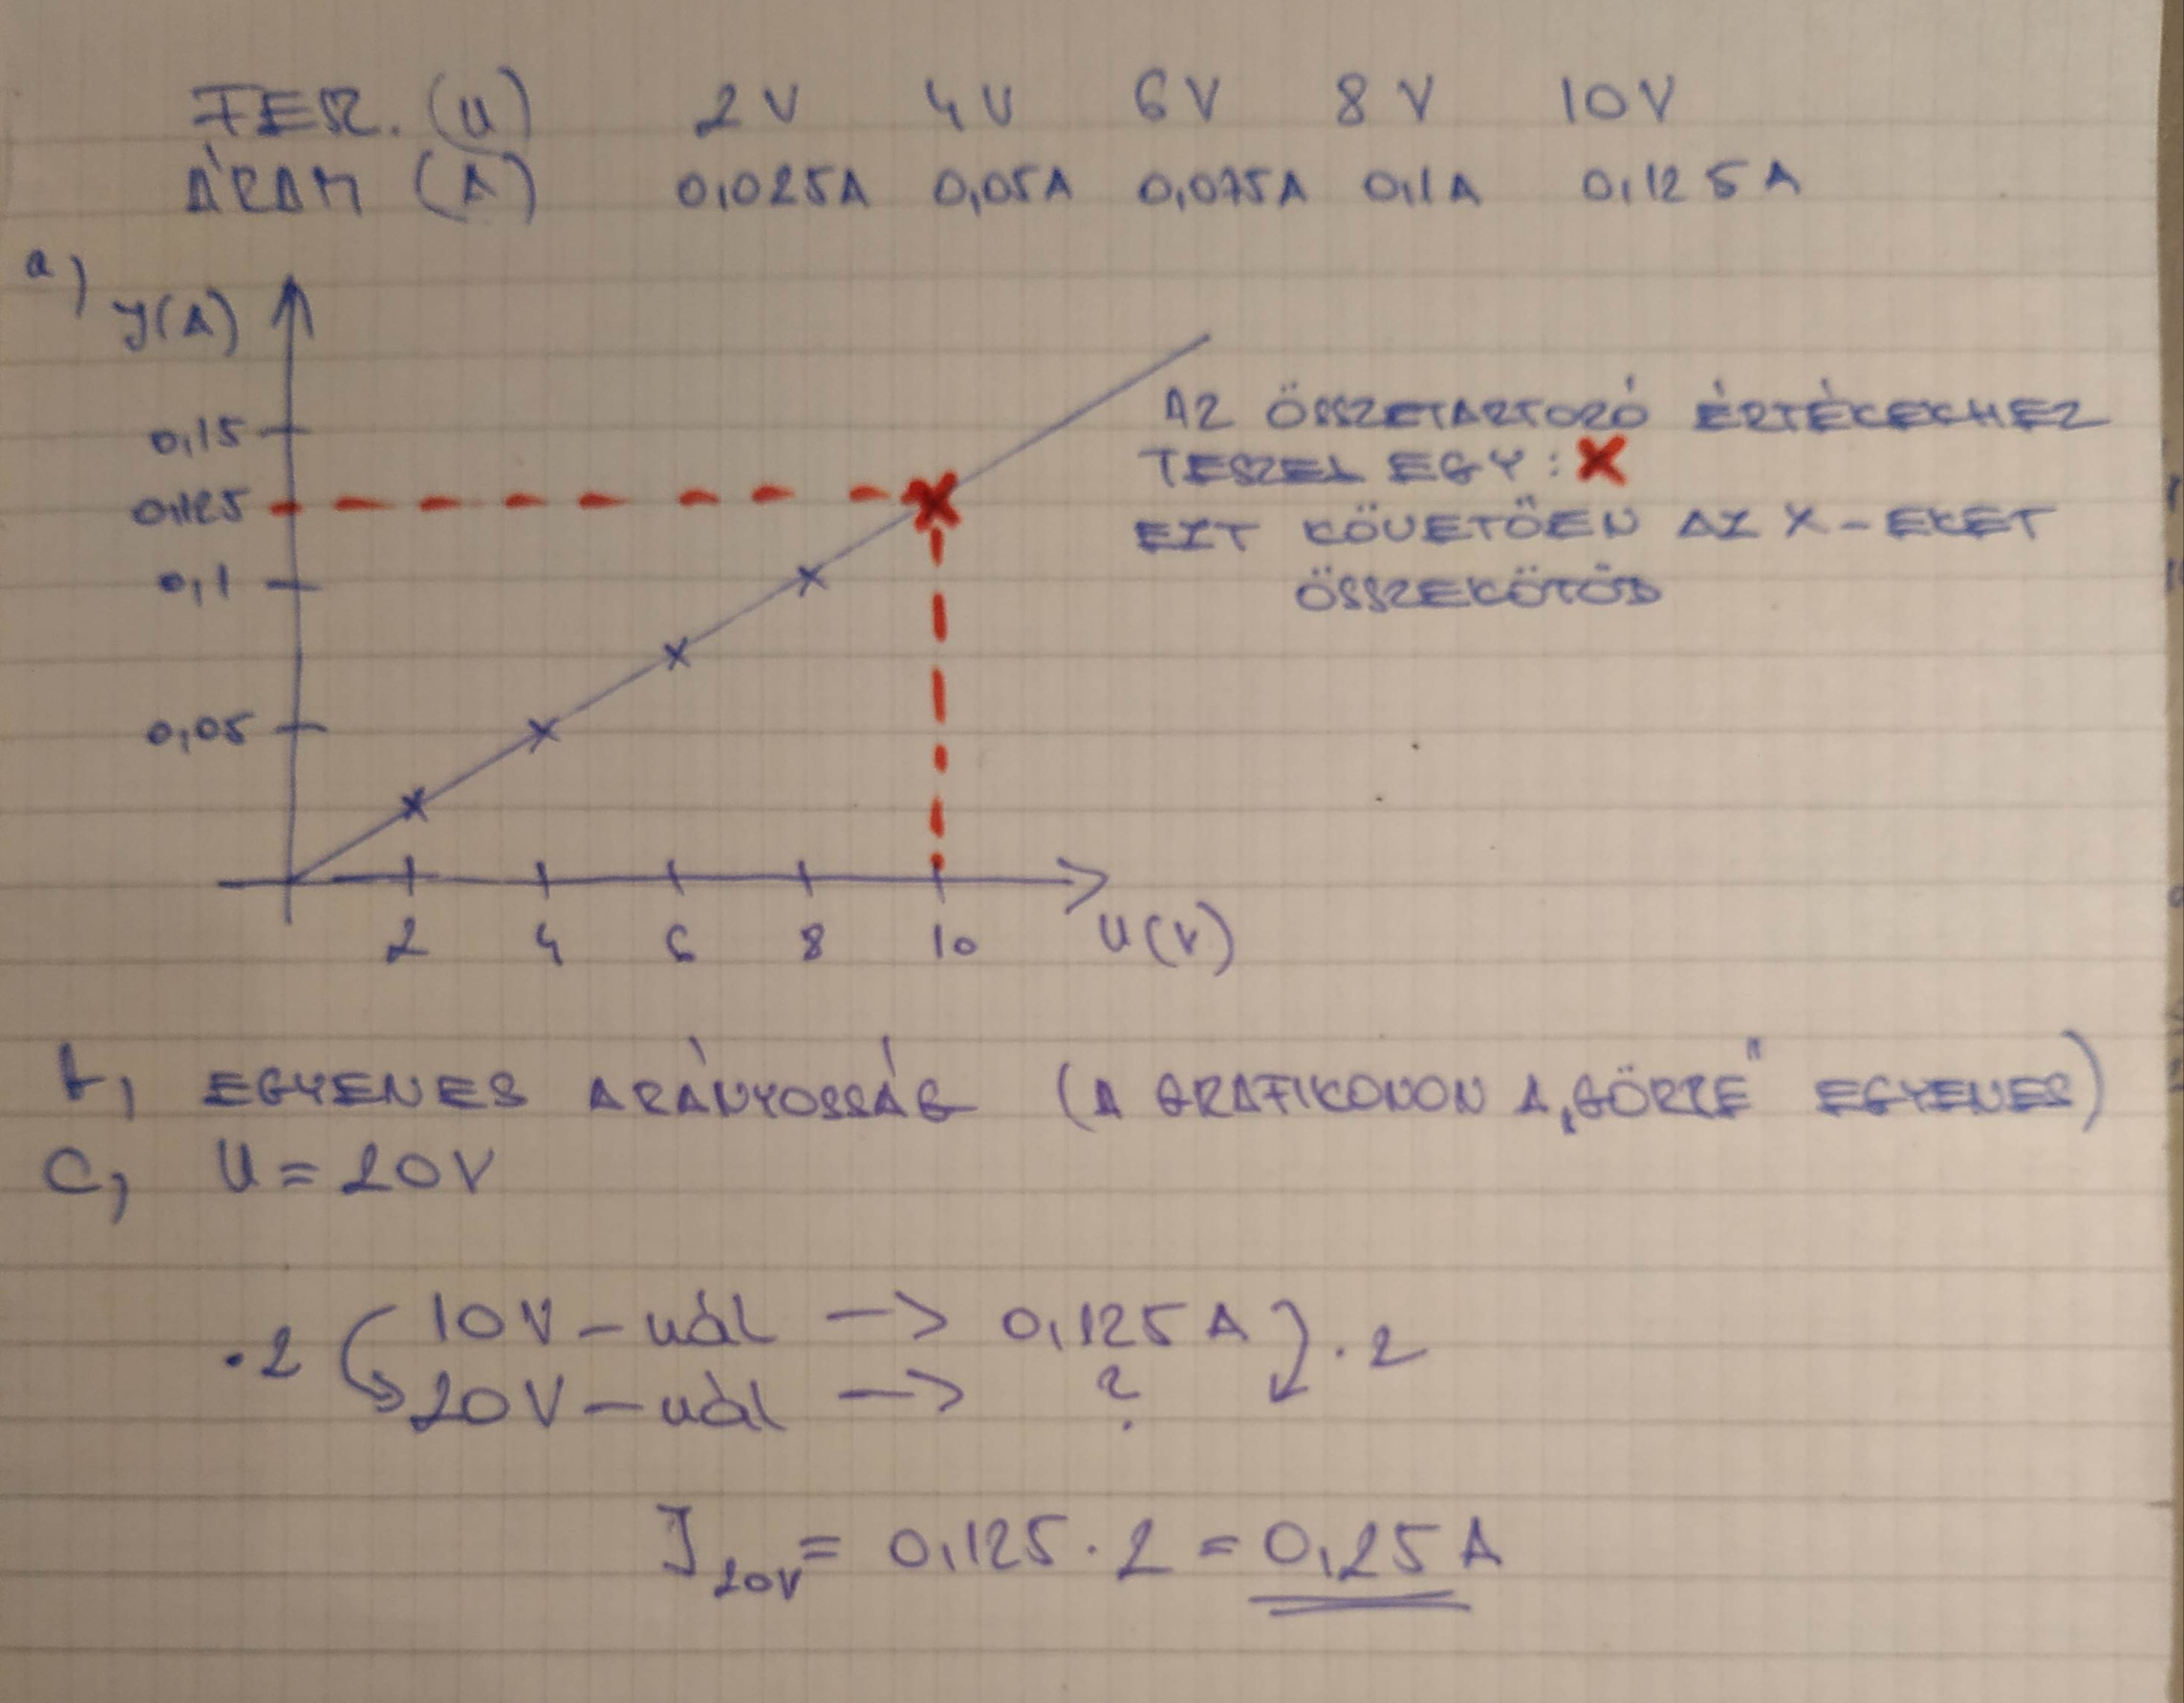 FESZ. (U) 2V 4V 6V 8V 10V
ÁRAM (A) 0,025A 0,05A 0,075A 0,1A 0,125A
a)
I(A)
0,15
0,125
0,1
0,05
2 4 6 8 10
U(V)
AZ ÖSSZETARTOZÓ ÉRTÉKEKHEZ
TESZEL EGY: X
EZT KÖVETŐEN AZ X-EKET
ÖSSZEKÖTÖD
b, EGYENES ARÁNYOSSÁG (A GRAFIKONON A „GÖRBE" EGYENES)
C, U = 20V
·2 10V-nál -> 0,125A ·2
20V-nál -> ?
I20V = 0,125 · 2 = 0,25A